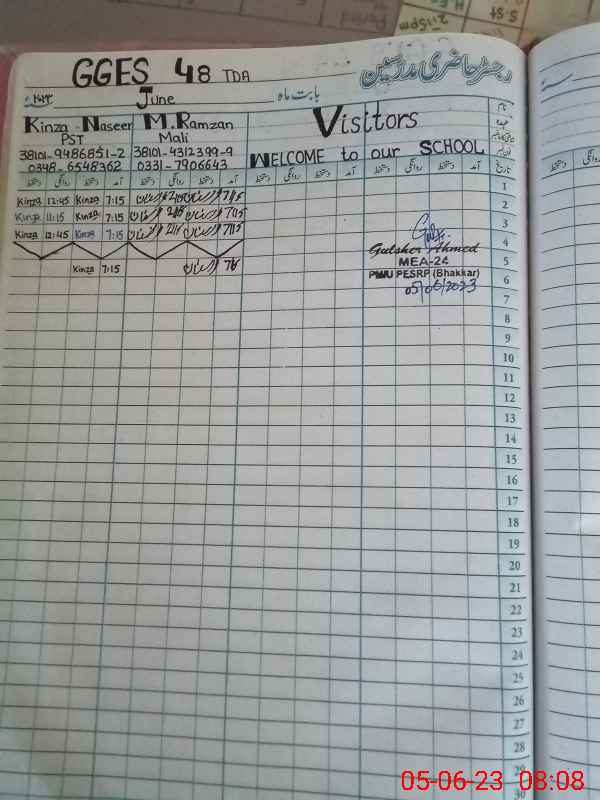 2:15pm
S.St
GGES 48 TDA
رجسٹر حاضری مدرسین
June
بابت ماہ
Kinza Naseer M. Ramzan Visitors
PST Mali
38101-9486851-2 38101-4312399-9
0348-6548362 0331-7906643 WELCOME to our SCHOOL
دستخط روانگی دستخط آمد دستخط روانگی دستخط آمد دستخط روانگی دستخط آمد دستخط روانگی دستخط آمد تاریخ
Kinza 12:45 Kinza 7:15 1
Kinza 11:15 Kinza 7:15 2
Kinza 12:45 Kinza 7:15 3
4
Gulsher Ahmed
Kinza 7:15 MEA-24 5
PMU PESRP (Bhakkar) 6
05/06/2023 7
8
9
10
11
12
13
14
15
16
17
18
19
20
21
22
23
24
25
26
27
28
29
30
05-06-23 08:08